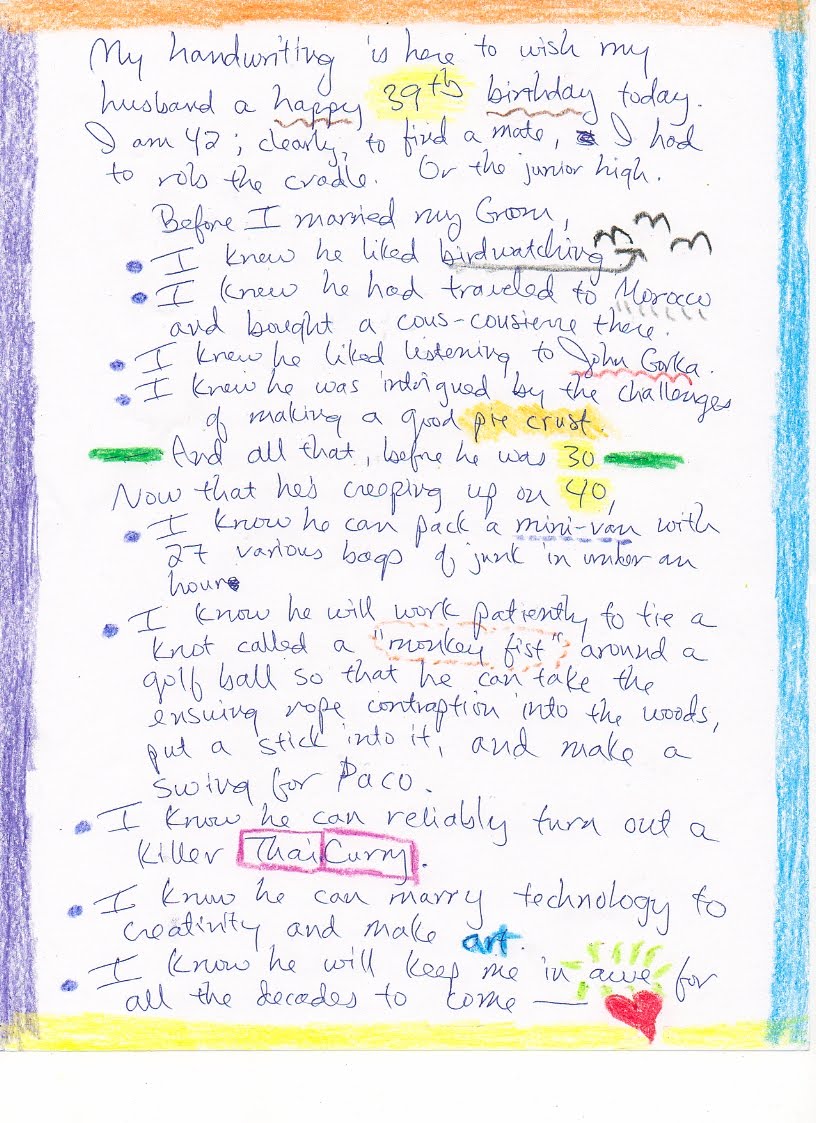 My handwriting is here to wish my
husband a happy 39th birthday today.
I am 42; clearly, to find a mate, I had
to rob the cradle. Or the junior high.
Before I married my Groom,
• I knew he liked birdwatching
• I knew he had traveled to Morocco
and bought a cous-cousierre there.
• I knew he liked listening to John Gorka.
• I knew he was intrigued by the challenges
of making a good pie crust.
And all that, before he was 30
Now that he's creeping up on 40,
• I know he can pack a mini-van with
27 various bags of junk in under an
hour
• I know he will work patiently to tie a
knot called a "monkey fist" around a
golf ball so that he can take the
ensuing rope contraption into the woods,
put a stick into it, and make a
swing for Paco.
• I know he can reliably turn out a
killer Thai Curry.
• I know he can marry technology to
creativity and make art.
• I know he will keep me in awe for
all the decades to come —